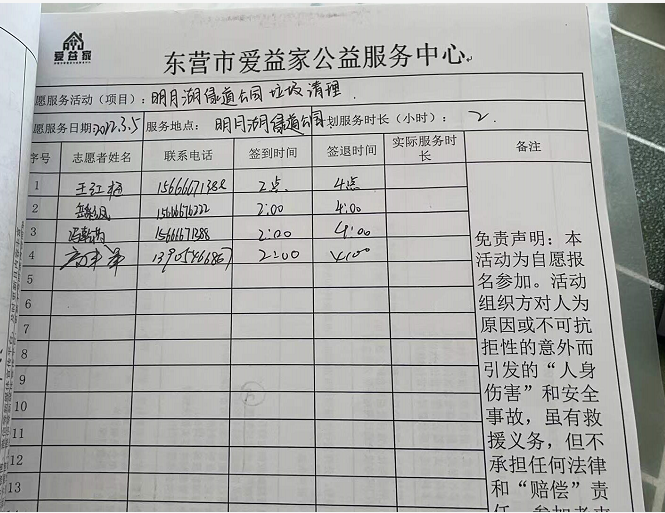 爱益家
东营市爱益家公益服务中心
愿服务活动（项目）：明月湖绿道公园垃圾清理
愿服务日期：2022.3.5 服务地点：明月湖绿道公园 划服务时长（小时）：2
序号 志愿者姓名 联系电话 签到时间 签退时间 实际服务时长 备注
1 王红梅 2点 4点
2 15666676222 2:00 4:00
3 15666671388 2:00 4:00
4 2:00 4:00
5
6
7
8
9
10
11
12
13
免责声明：本
活动为自愿报
名参加。活动
组织方对人为
原因或不可抗
拒性的意外而
引发的“人身
伤害”和安全
事故，虽有救
援义务，但不
承担任何法律
和“赔偿”责